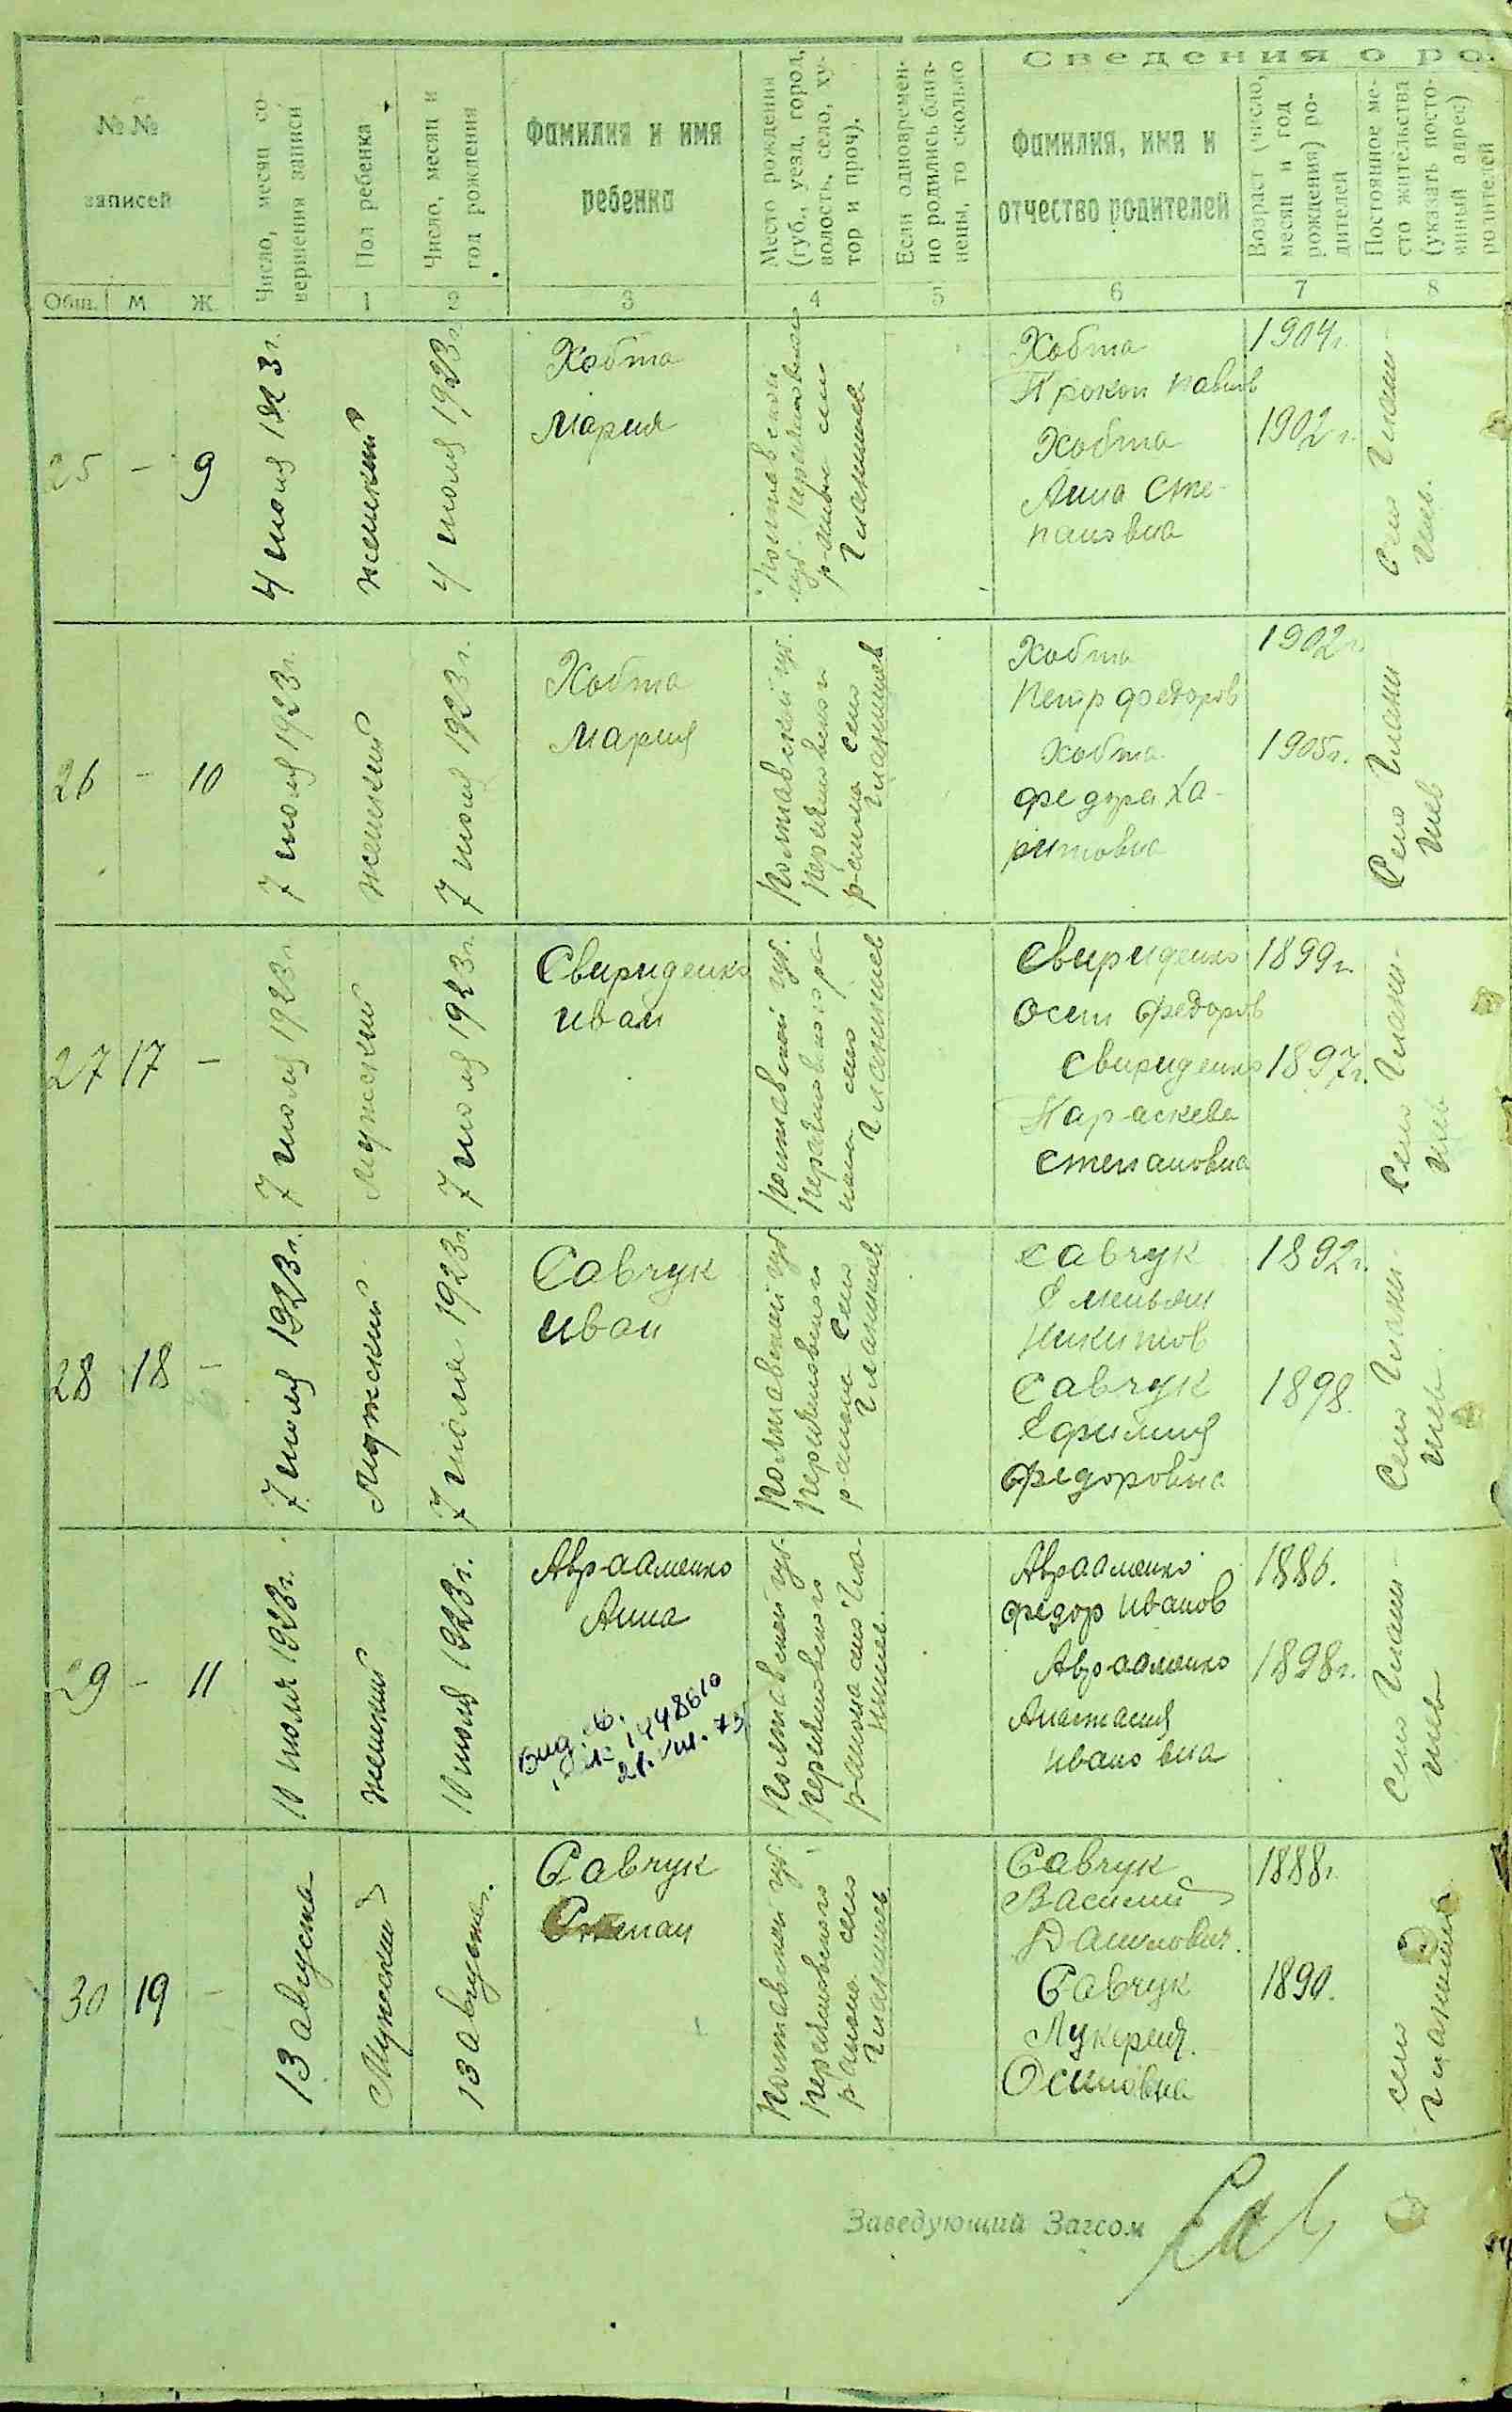 Сведения о ро-
№№
записей
Число, месяц со-
вершения записи
Пол ребенка
Число, месяц и
год рождения
Фамилия и имя
ребенка
Место рождения
(губ., уезд, город,
волость, село, ху-
тор и проч).
Если одновремен-
но родились близ-
нецы, то сколько
Фамилия, имя и
отчество родителей
Возраст (число,
месяц и год
рождения) ро-
дителей
Постоянное ме-
сто жительства
(указать посто-
янный адрес)
родителей
Общ. М Ж. 1 2 3 4 5 6 7 8
25 - 9
4 июля 1923 г.
женский
4 июля 1923 г.
Хобта
Мария
Полтавской
губ.
села
Хобта
Прокоп Павлов
Хобта
Анна Сте-
пановна
1904 г.
1902 г.
Село
26 - 10
7 июля 1923 г.
женский
7 июля 1923 г.
Хобта
Мария
Полтавской губ.
района село
Хобта
Петр Федоров
Хобта
Федора Ха-
ритовна
1902 г.
1905 г.
Село
27 17 -
7 июля 1923 г.
Мужской
7 июля 1923 г.
Свириденко
Иван
Полтавской губ.
село
Свириденко
Осип Федоров
Свириденко
Параскева
Степановна
1899 г.
1897 г.
Село
28 18 -
7 июля 1923 г.
Мужской
7 июля 1923 г.
Савчук
Иван
Полтавской губ.
района село
Савчук
Емельян
Никитов
Савчук
Ефимия
Федоровна
1892 г.
1898.
Село
29 - 11
10 июля 1923 г.
женский
10 июля 1923 г.
Авраменко
Анна
Вид. св.
21.VIII.73
Полтавской губ.
района село
Авраменко
Федор Иванов
Авраменко
Анастасия
Ивановна
1886.
1898 г.
Село
30 19 -
13 августа
Мужской
13 августа.
Савчук
Степан
Полтавской губ.
района село
Савчук
Василий
Данилович.
Савчук
Лукерия.
Осиповна
1888 г.
1890.
село
Заведующий Загсом